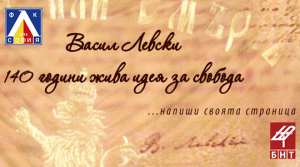 ФК
СОФИЯ
Васил Левски
140 години жива идея за свобода
...напиши своята страница
В. Левскій
БНТ